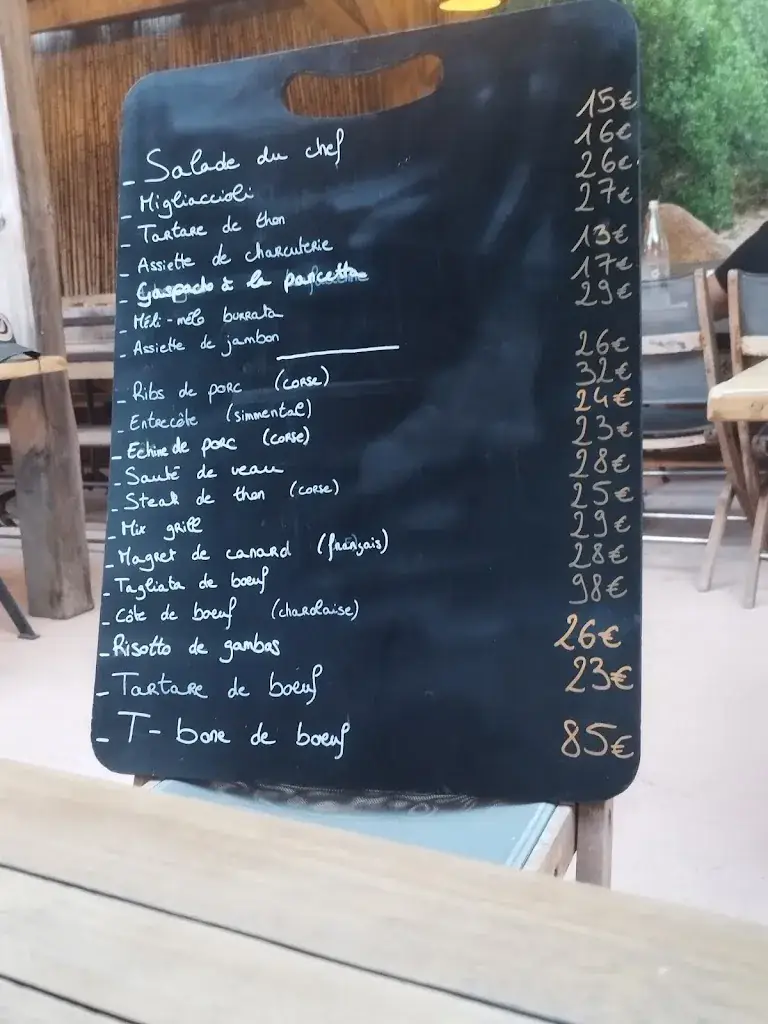 - Salade du chef 15€
- Migliaccioli 16€
- Tartare de thon 26€
- Assiette de charcuterie 27€
- Gaspacho à la pancetta 13€
- Méli-mélo burrata 17€
- Assiette de jambon 29€
- Ribs de porc (corse) 26€
- Entrecôte (simmental) 32€
- Echine de porc (corse) 24€
- Sauté de veau 23€
- Steak de thon (corse) 28€
- Mix grill 25€
- Magret de canard (français) 29€
- Tagliata de boeuf 28€
- Côte de boeuf (charolaise) 98€
- Risotto de gambas 26€
- Tartare de boeuf 23€
- T-bone de boeuf 85€